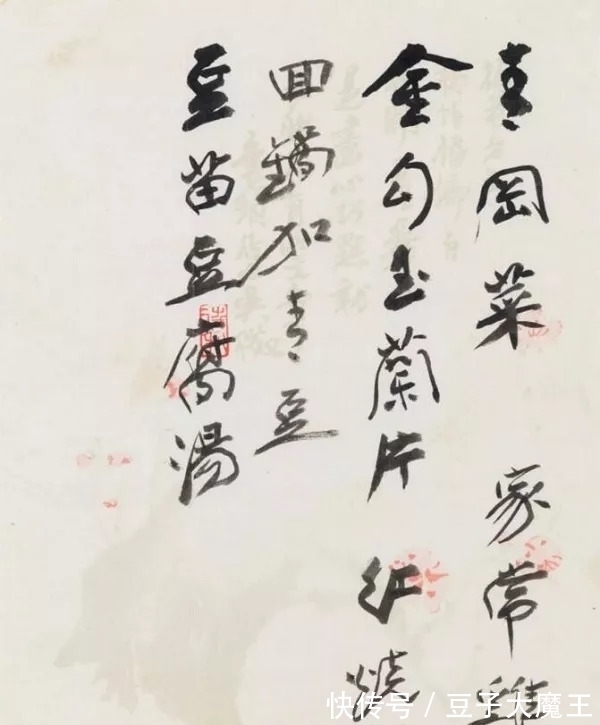 青岡菜 家常
金勾玉蘭片 紅燒
回鍋加青豆
豆苗豆腐湯
快传号 / 豆子大魔王